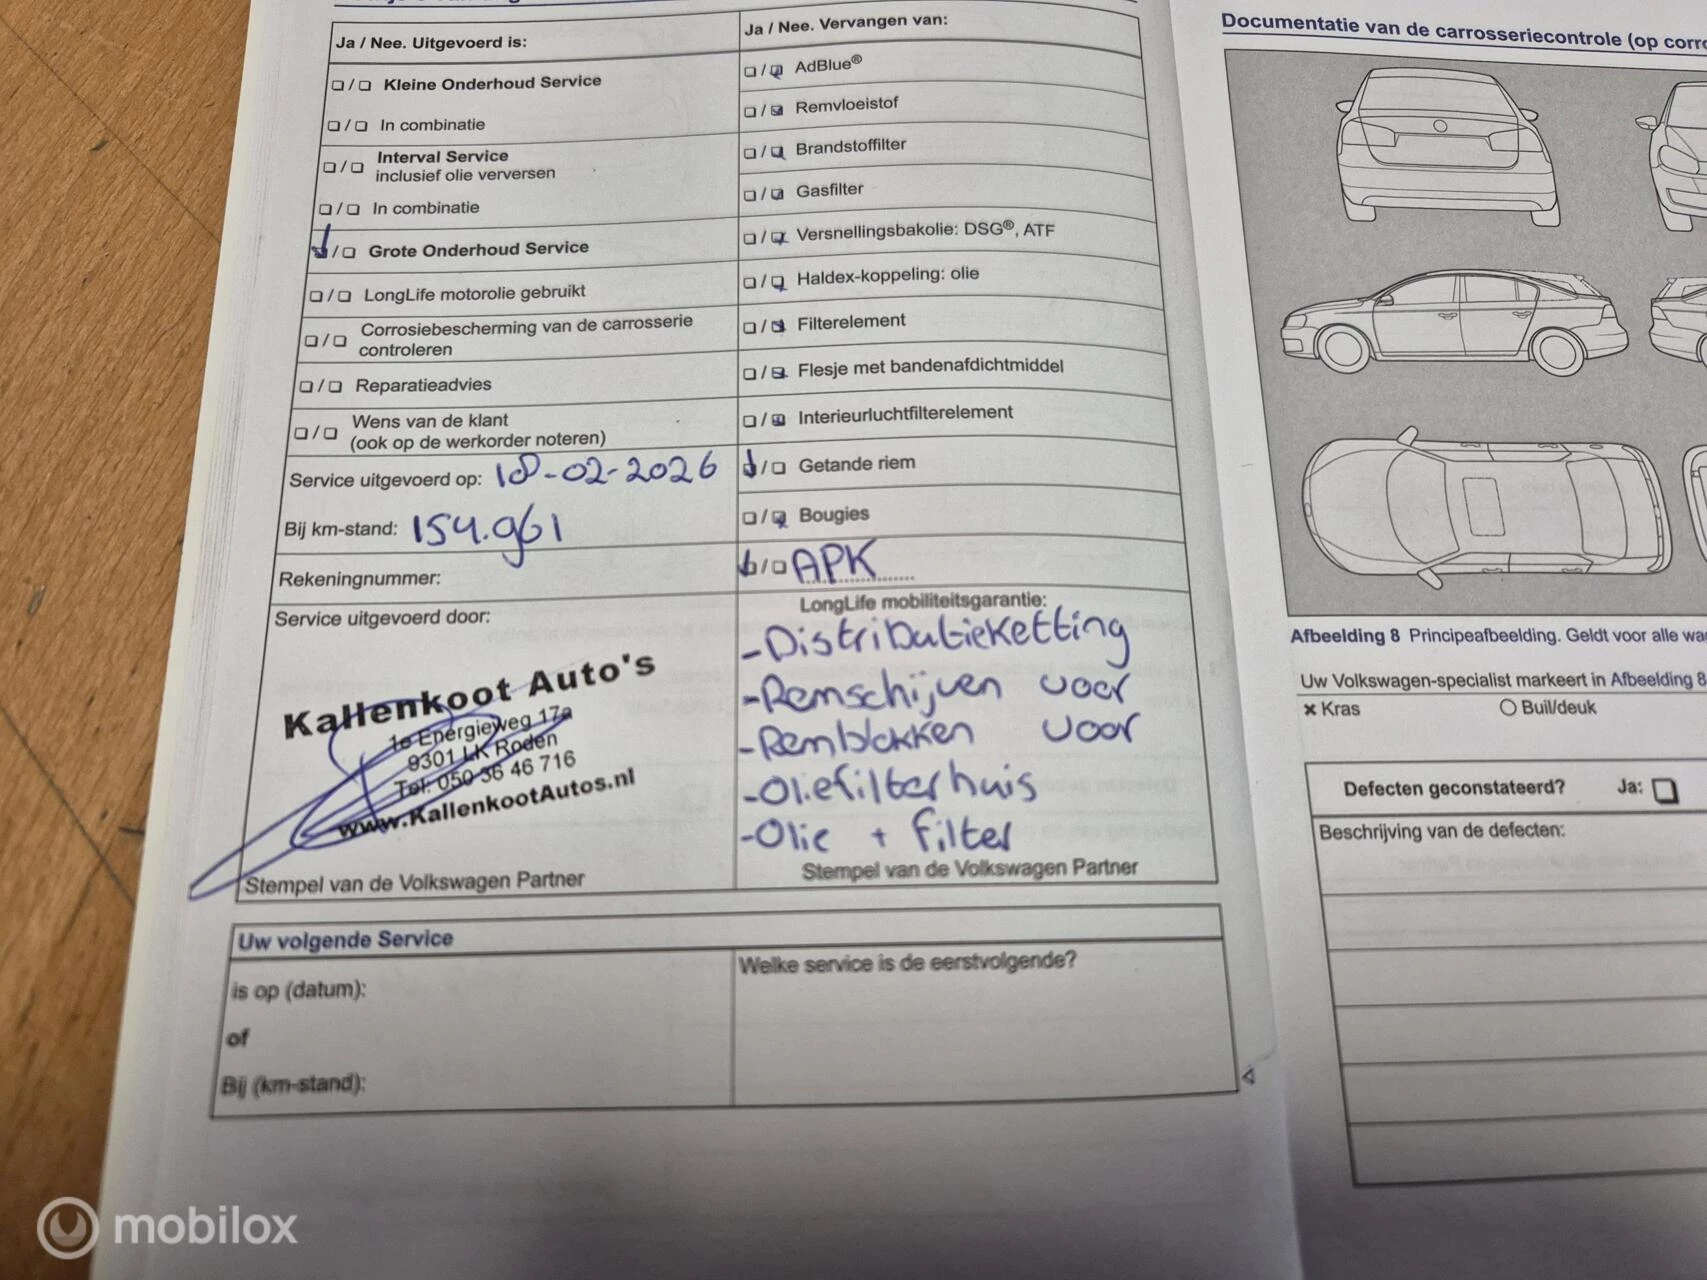 Ja / Nee. Uitgevoerd is:
Kleine Onderhoud Service
In combinatie
Interval Service
inclusief olie verversen
In combinatie
Grote Onderhoud Service
LongLife motorolie gebruikt
Corrosiebescherming van de carrosserie
controleren
Reparatieadvies
Wens van de klant
(ook op de werkorder noteren)
Service uitgevoerd op: 18-02-2026
Bij km-stand: 154.961
Rekeningnummer:
Service uitgevoerd door:
Kallenkoot Auto's
1e Energieweg 17a
9301 LK Roden
Tel: 050 36 46 716
www.KallenkootAutos.nl
Stempel van de Volkswagen Partner
Ja / Nee. Vervangen van:
AdBlue®
Remvloeistof
Brandstoffilter
Gasfilter
Versnellingsbakolie: DSG®, ATF
Haldex-koppeling: olie
Filterelement
Flesje met bandenafdichtmiddel
Interieurluchtfilterelement
Getande riem
Bougies
APK
LongLife mobiliteitsgarantie:
-Distributieketting
-Remschijven voor
-Remblokken voor
-Oliefilterhuis
-Olie + filter
Stempel van de Volkswagen Partner
Uw volgende Service
is op (datum):
of
Bij (km-stand):
Welke service is de eerstvolgende?
Documentatie van de carrosseriecontrole (op
Afbeelding 8 Principeafbeelding. Geldt voor alle
Uw Volkswagen-specialist markeert in Afbeelding 8
× Kras
Buil/deuk
Defecten geconstateerd? Ja:
Beschrijving van de defecten:
mobilox